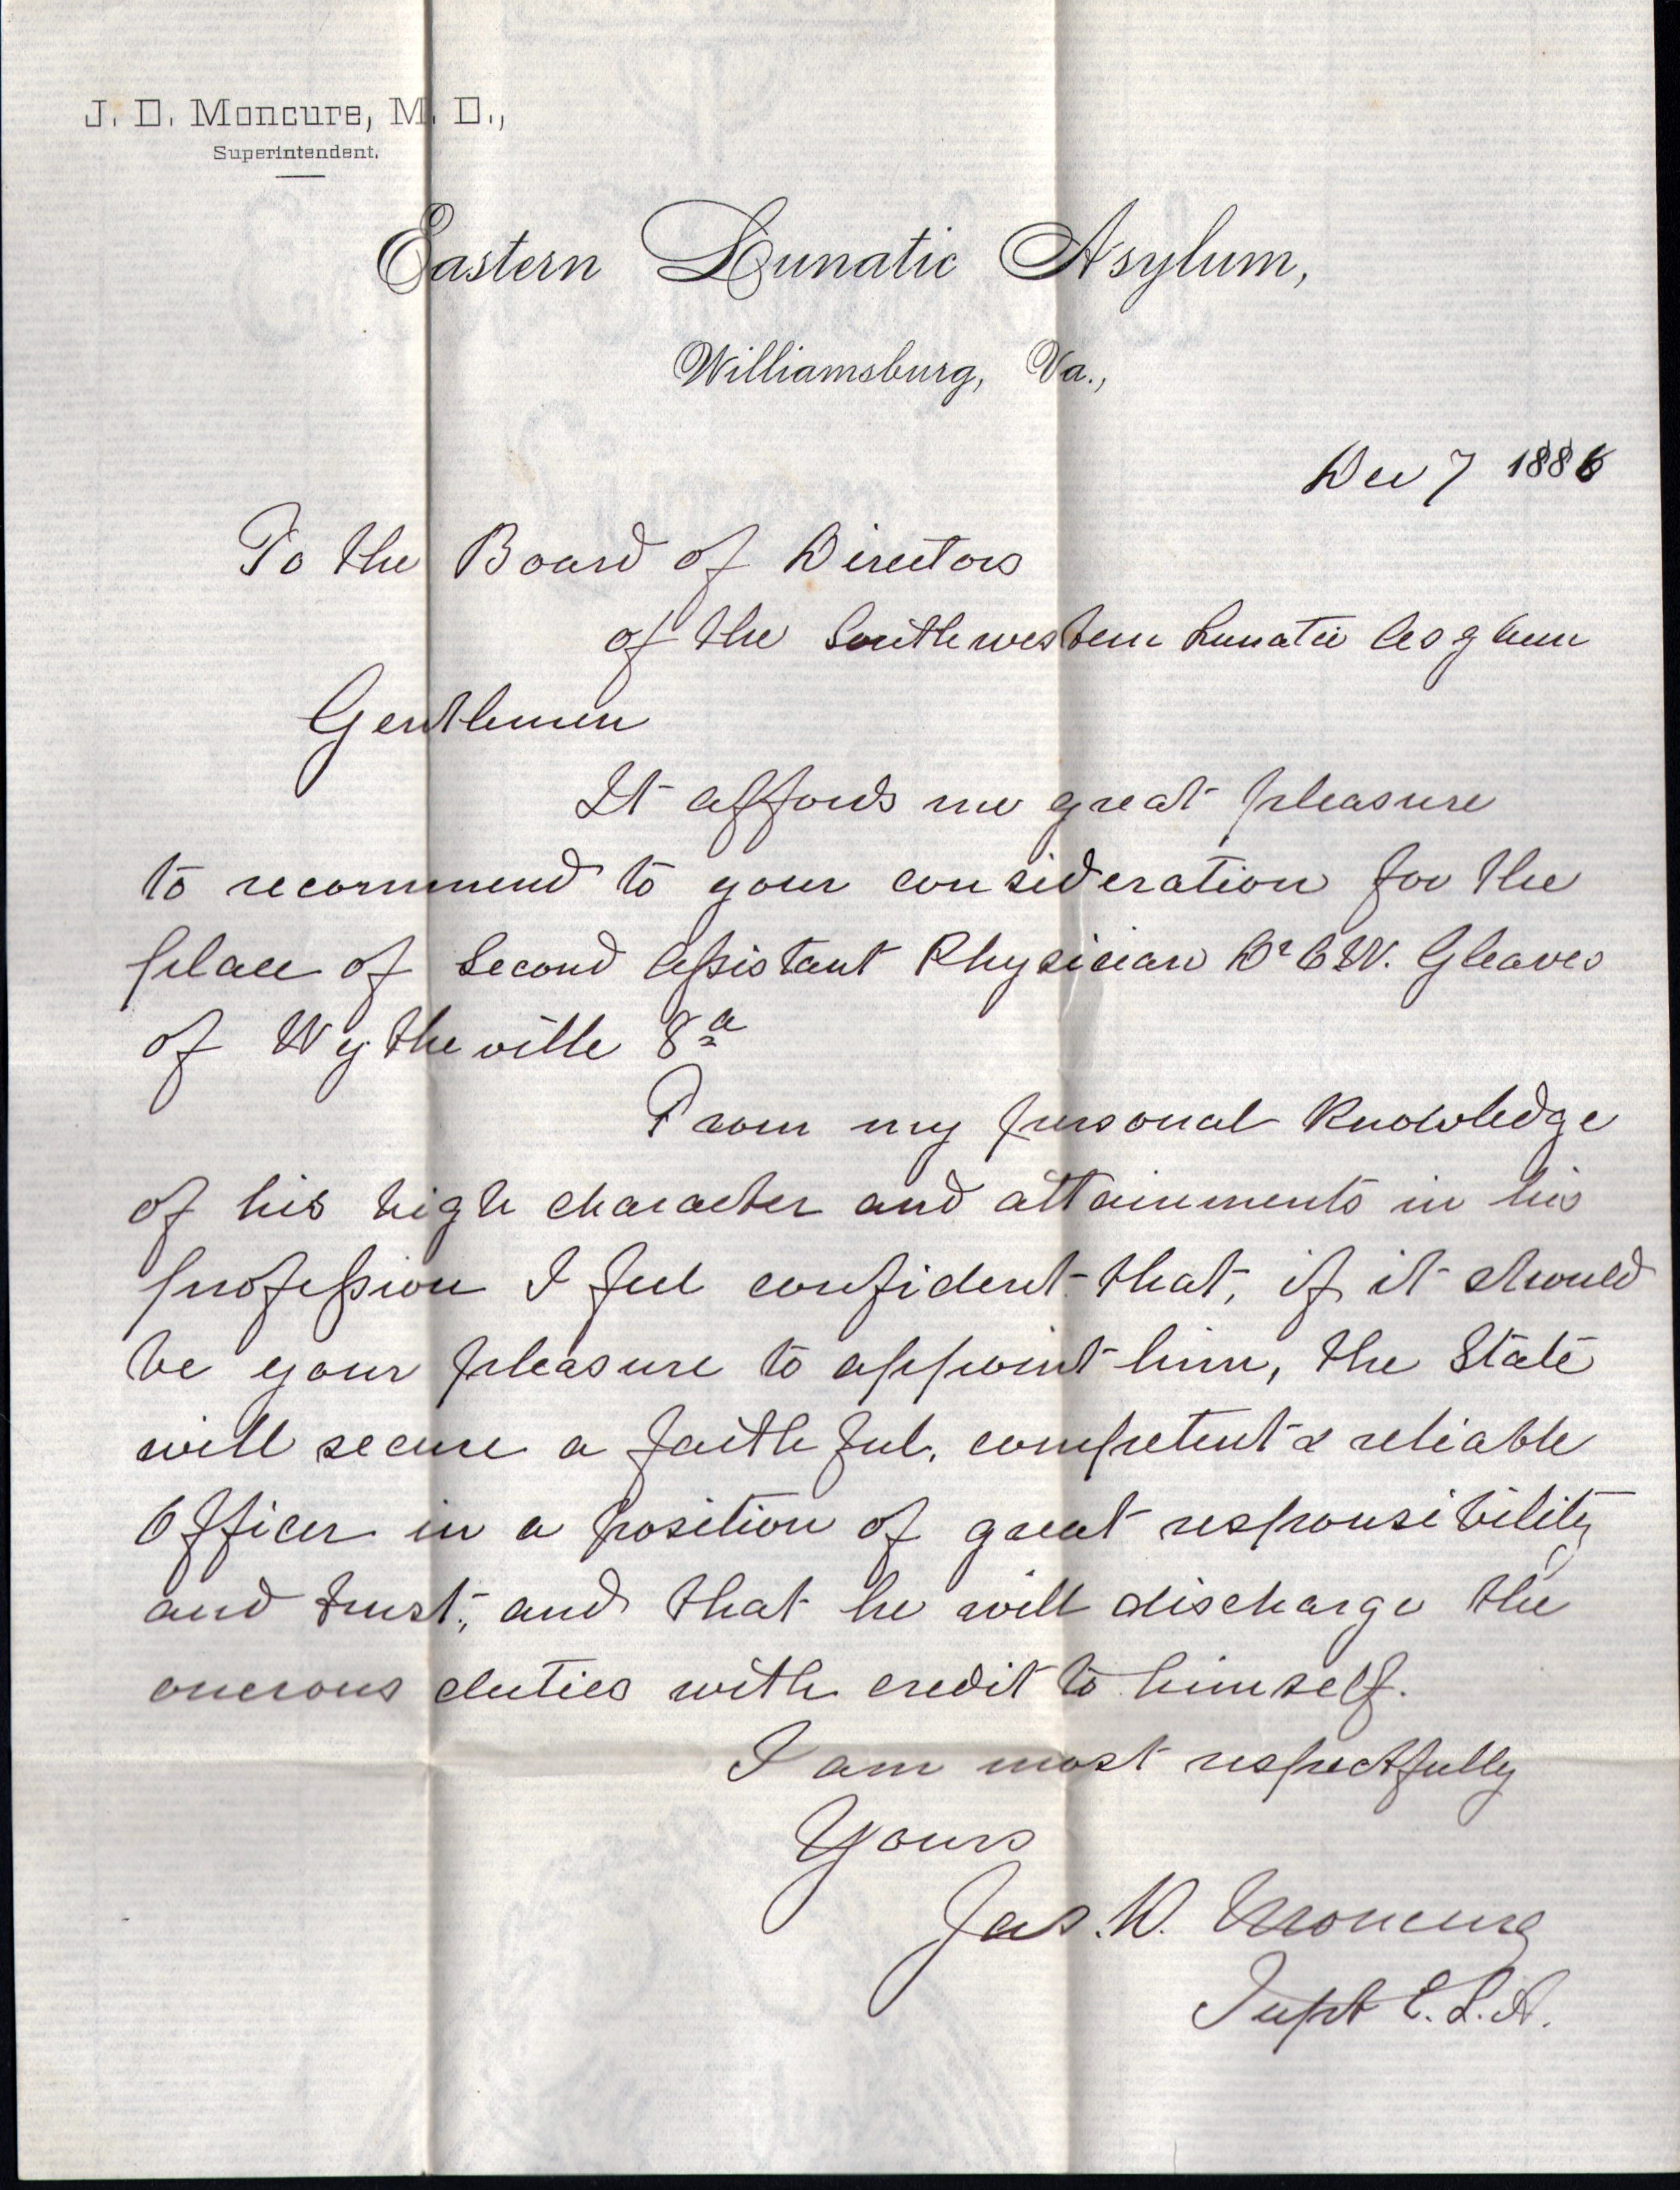 J. D. Moncure, M. D.,
Superintendent.
Eastern Lunatic Asylum,
Williamsburg, Va.,
Dec 7 1886
To the Board of Directors
of the Southwestern Lunatic Asylum
Gentlemen
It affords me great pleasure
to recommend to your consideration for the
place of Second Assistant Physician Dr C W. Gleaves
of Wytheville Va
From my personal knowledge
of his high character and attainments in his
profession I feel confident that, if it should
be your pleasure to appoint him, the State
will secure a faithful, competent & reliable
Officer in a position of great responsibility
and trust, and that he will discharge the
onerous duties with credit to himself.
I am most respectfully
Yours
Jas. D. Moncure
Supt E. L. A.